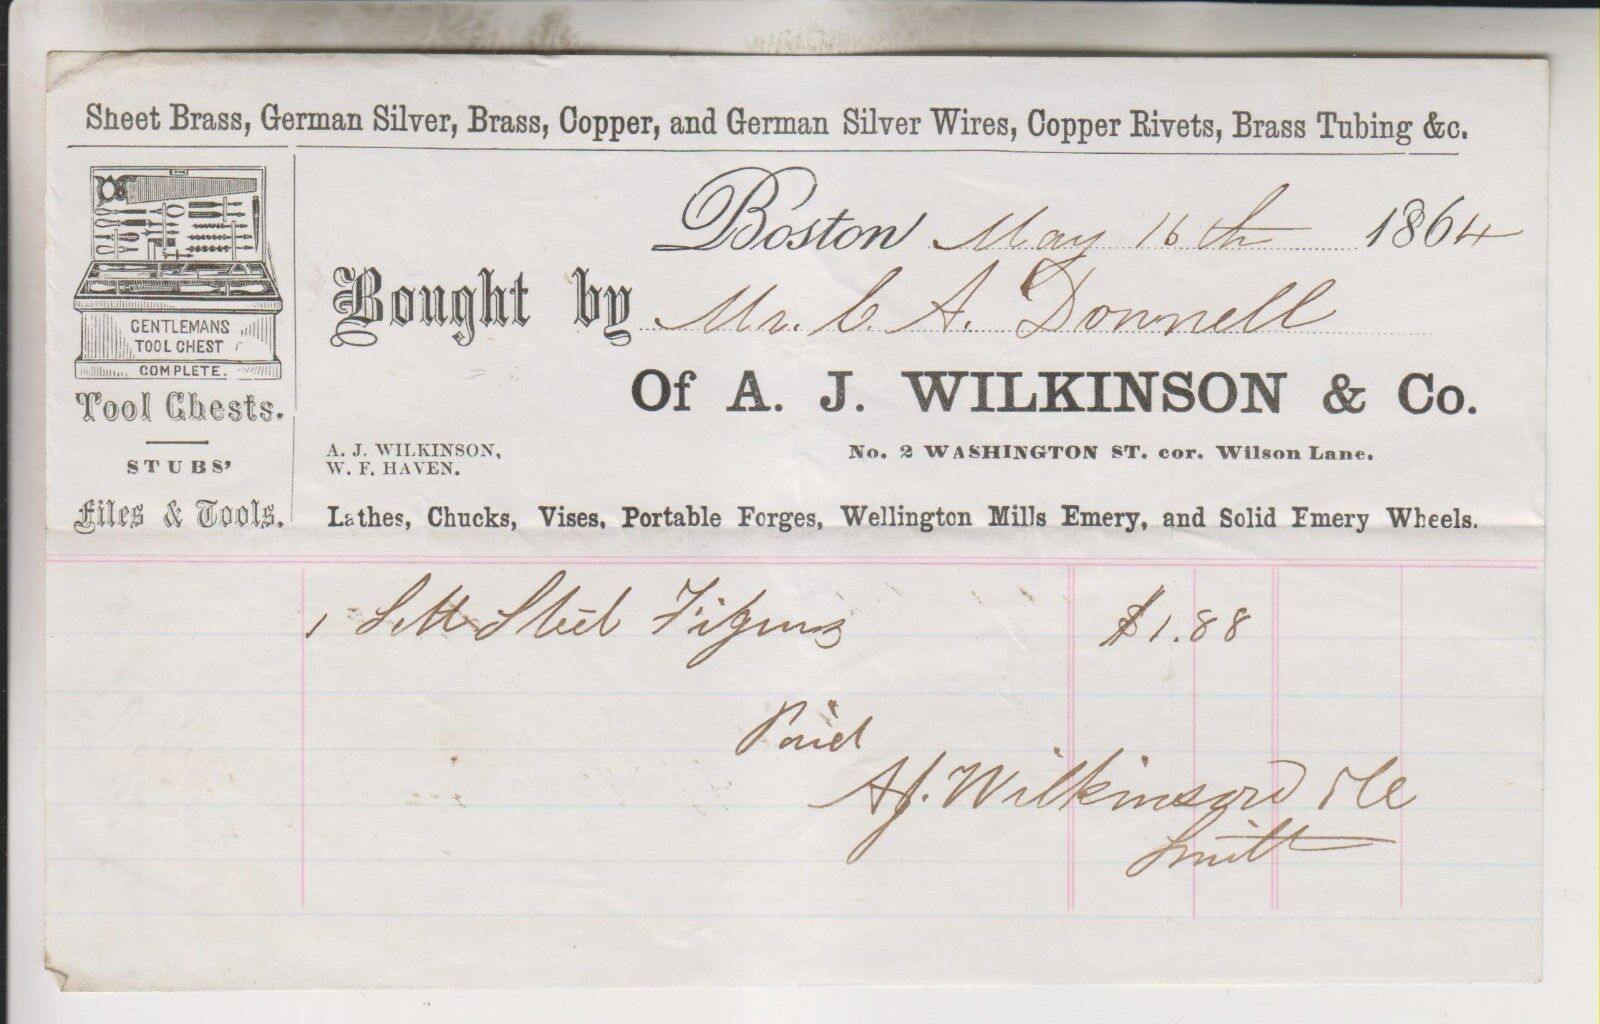 Sheet Brass, German Silver, Brass, Copper, and German Silver Wires, Copper Rivets, Brass Tubing &c.
GENTLEMANS
TOOL CHEST
COMPLETE.
Tool Chests.
STUBS'
Files & Tools.
Boston May 16th 1864
Bought by Mr. C. A. Donnell
Of A. J. WILKINSON & Co.
A. J. WILKINSON,
W. F. HAVEN.
No. 2 WASHINGTON ST. cor. Wilson Lane.
Lathes, Chucks, Vises, Portable Forges, Wellington Mills Emery, and Solid Emery Wheels.
1 Sett Steel Figures $1.88
Paid
A J. Wilkinson & Co
Smith